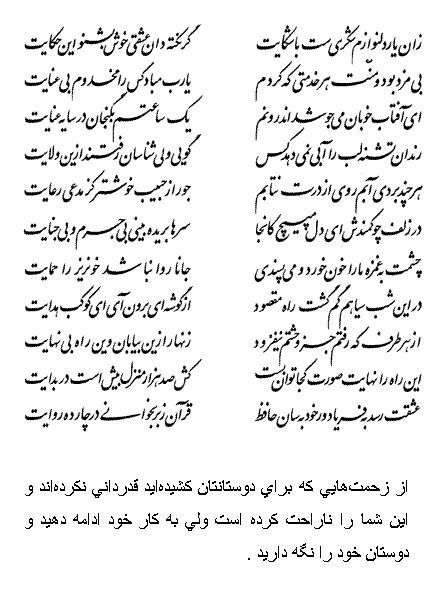 زان یار دلنوازم شکری ست با شکایت گر نکته دان عشقی خوش بشنو این حکایت
بی مزد بود و منّت هر خدمتی که کردم یارب مباد کس را مخدوم بی عنایت
ای آفتاب خوبان می جوشد اندرونم یک ساعتم بگنجان در سایه عنایت
رندان تشنه لب را آبی نمی دهد کس گویی ولی شناسان رفتند ازین ولایت
هرچند بردی آبم روی از درت نتابم جور از حبیب خوشتر کز مدعی رعایت
در زلف چو کمندش ای دل مپیچ کانجا سرها بریده بینی بی جرم و بی جنایت
چشمت به غمزه ما را خون خورد و می پسندی جانا روا نباشد خونریز را حمایت
در این شب سیاهم گم گشت راه مقصود از گوشه ای برون آی ای کوکب هدایت
از هر طرف که رفتم جز وحشتم نیفزود زنهار ازین بیابان وین راه بی نهایت
این راه را نهایت صورت کجا توان بست کش صد هزار منزل بیش است در بدایت
عشقت رسد به فریاد ور خود به سان حافظ قرآن ز بر بخوانی در چارده روایت
از زحمت‌هايي كه براي دوستانتان كشيده‌ايد قدرداني نكرده‌اند و
اين شما را ناراحت كرده است ولي به كار خود ادامه دهيد و
دوستان خود را نگه داريد .